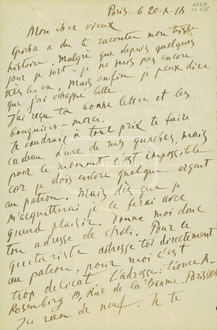 Paris, le 20-X-16
Mon cher vieux
a du te raconter mon triste
histoire. Malgré que depuis quelques
jours je sort - je ne suis pas encore
très bien. Mais enfin je peux dire
que j'ai échappé belle.
J'ai reçu ta bonne lettre et les
bouquins - merci.
Je voudrais à tout prix te faire
cadeau d'une de mes guaches, mais
pour le moment c'est impossible
car je dois encore quelque argent
au patron. Mais dès que je
m'acquitterai je le ferai avec
grand plaisir. Donne moi donc
ton adresse de chèt. Pour le
guitariste adresse toi directement
au patron, pour moi c'est
trop délicat. L'adresse: Léonce
Rosenberg 19, Rue de la Baume. Paris
J'ai rien de neuf. Je te